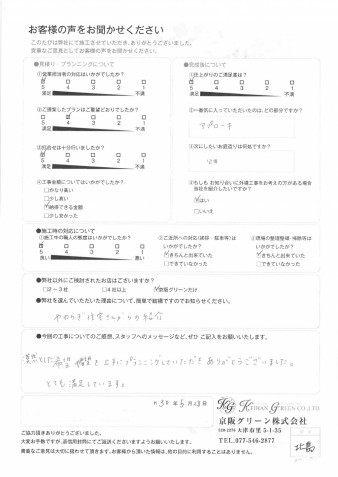 お客様の声をお聞かせください
このたびは弊社にて施工させていただき、ありがとうございました。
貴重なご意見としてお客様の声をお聞かせください。
●見積り・プランニングについて
①営業担当者の対応はいかがでしたか?
5 4 3 2 1
満足 不満
②ご提案したプランはご要望どおりでしたか?
5 4 3 2 1
満足 不満
③打合せは十分行いましたか?
5 4 3 2 1
満足 不満
④工事金額についてはいかがでしたか?
□かなり高い
□少し高い
☑納得できる金額
□少し安かった
●完成後について
①仕上がりのご満足度は?
5 4 3 2 1
満足 不満
②一番気に入っていただいたのは、どの部分ですか?
アプローチ
③次にしたいお庭造りは何処ですか?
④もしも お知り合いに外構工事をお考えの方がある場合
当社を紹介したいですか?
☑はい
□いいえ
●施工時の対応について
①施工中の職人の態度はいかがでしたか?
5 4 3 2 1
良い 悪い
②ご近所への対応(挨拶・駐車等)は
いかがでしたか?
☑きちんと出来ていた
□できていなかった
③現場の整理整頓・掃除等は
いかがでしたか?
☑きちんと出来ていた
□できていなかった
●弊社以外にご検討されたお店はございますか?
□2～3社 □4社以上 ☑京阪グリーンだけ
●弊社を選んでいただいた理由について、簡単で結構ですのでお知らせください。
やわらぎ住宅さんからの紹介
●今回の工事についてのご感想、スタッフへのメッセージなど、ぜひ ご記入をお願いいたします。
漠然とした希望 を上手にプランニングしていただきありがとうございました。
とても満足しています。
KEIHAN GREEN CO.,LTD
京阪グリーン株式会社
大津市里5-1-35
TEL.077-546-2877
ご協力頂きありがとうございました。
大変お手数ですが、返信用封筒にてご返送くださいますようお願いいたします。
貴重なご意見は大切に扱わせて頂きます。お客様から頂いた情報は、他の目的に利用することはありません。
担当
北島